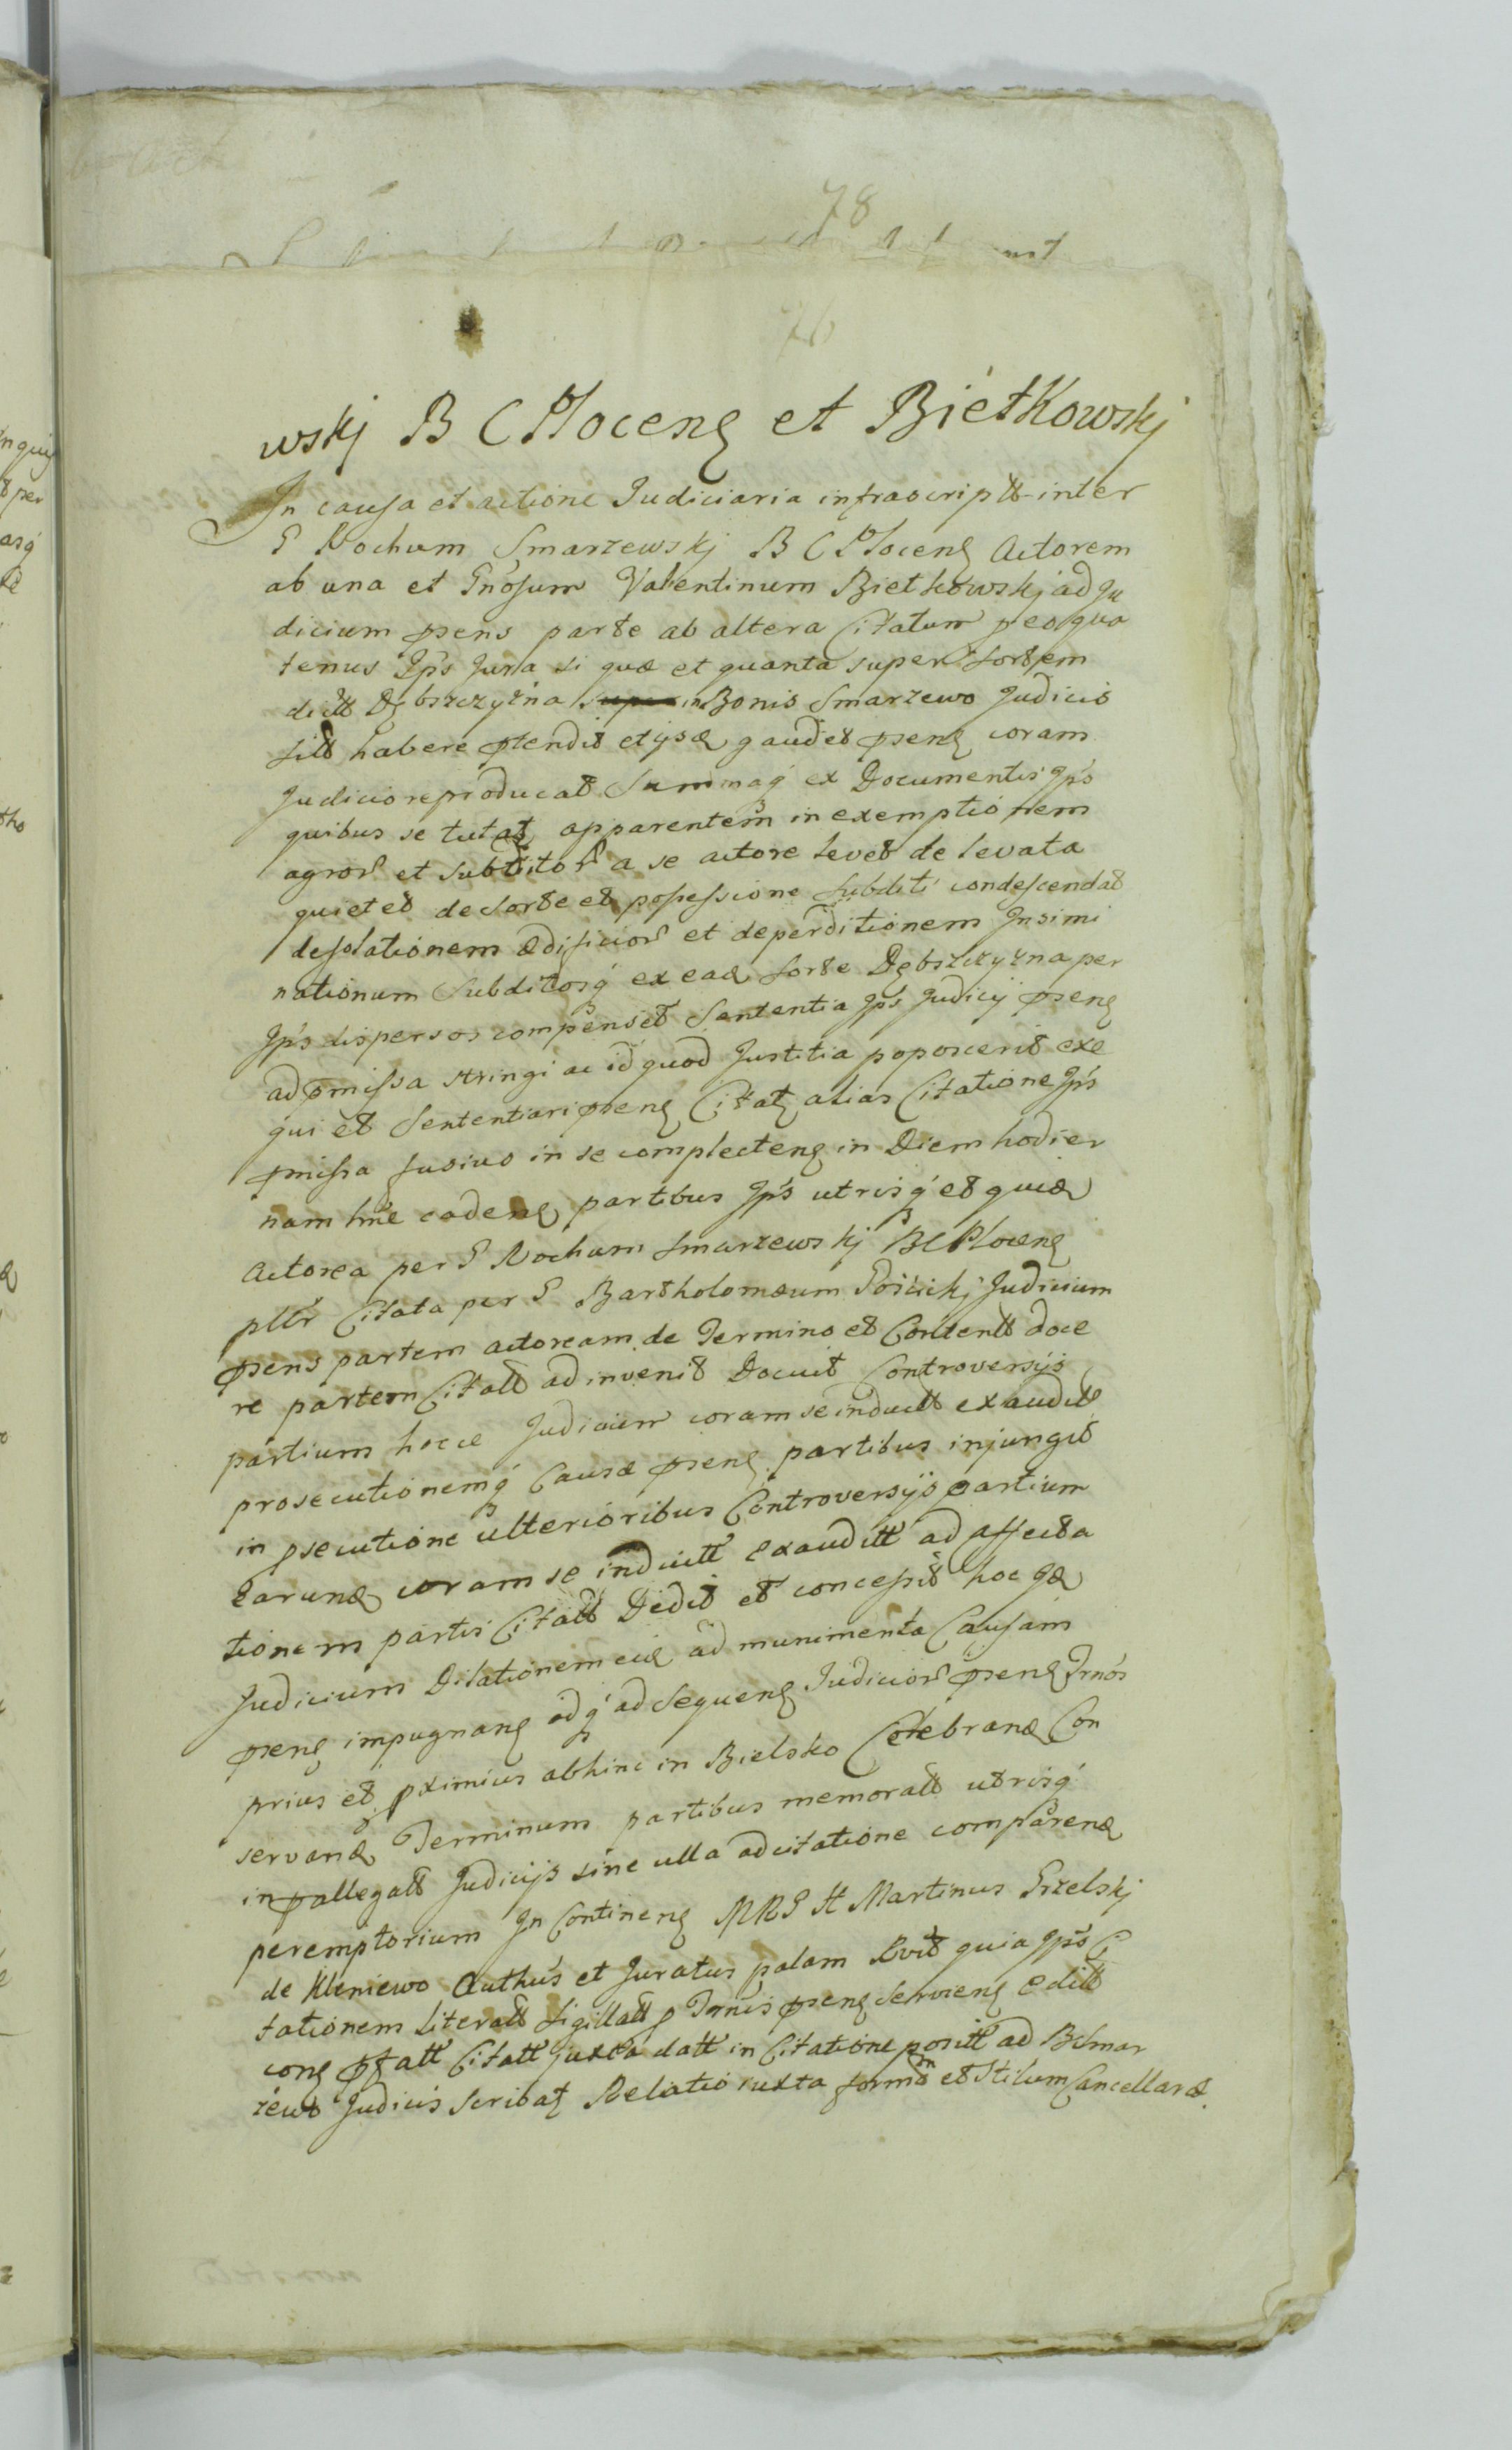 78
76
wskj B C Płocens et Bietkowskj
In causa et actione Judiciaria infrascriptt inter
G Rochum Smarzewskj B C Płocens Actorem
ab una et Gnosum Valentinum Bietkowskj ad Ju
dicium psens parte ab altera Citatum peo quo
tenus Jps Jura si quæ et quanta super Sortem
dictt Dębszczyżna in Bonis Smarzewo Judicis
sitt habere ptendit et ijsd gaudet psens coram
Judicio reproducat Summaq ex Documentis Jps
quibus se tutat apparentem in exemptionem
agror et Subditor a se actore levet de levata
quietet de Sorte et possessione Subditi condescendat
desolationem ædificior et deperditionem Insimi
nationum Subditosq ex ead Sorte Dębszczyżna per
Jps dispersos compenset Sententia Jps Judicij psens
ad pmissa stringi ac id quod Justitia poposcerit exe
qui et Sententiari psens Citat alias Citatione Jps
pmissa fusius in se complectens in Diem hodier
nam hne cadens partibus Jps utrisq et quid
Actorea per G Rochum Smarzewskj B C Płocens
pttr Citata per G Bartholomæum Judicium
psens partem actoream de Termino et Contentt doce
re partem Citatt adinvenit Docuit Controversijs
partium hocce Judicium coram se inductt exauditt
prosecutionemq Causæ psens partibus injungit
in psecutione ulterioribus Controversijs partium
Earund coram se inductt exauditt ad affecta
tionem partis Citatt Dedit et concessit hoc id
Judicium Dilationem eid ad munimenta Causam
psens impugnans idq ad Sequens Judicior psens Trnos
prius et pximius abhinc in Bielsko Celebrand Con
servand Terminum partibus memoratt utrisq
in pallegatt Judicijs sine ulla adcitatione comparend
peremptorium In Continens MRG H Martinus Grzelskj
de Kleniewo Authus et Juratus palam Rvit quia Jps Ci
tationem Literatt Sigillatt p Trnis psens Serviens editt
cons pfatt Citatt juxta datt in Citatione positt ad B Smar
zewo Judicis Scribat Relatio iuxta formam et Stilum Cancellaræ.